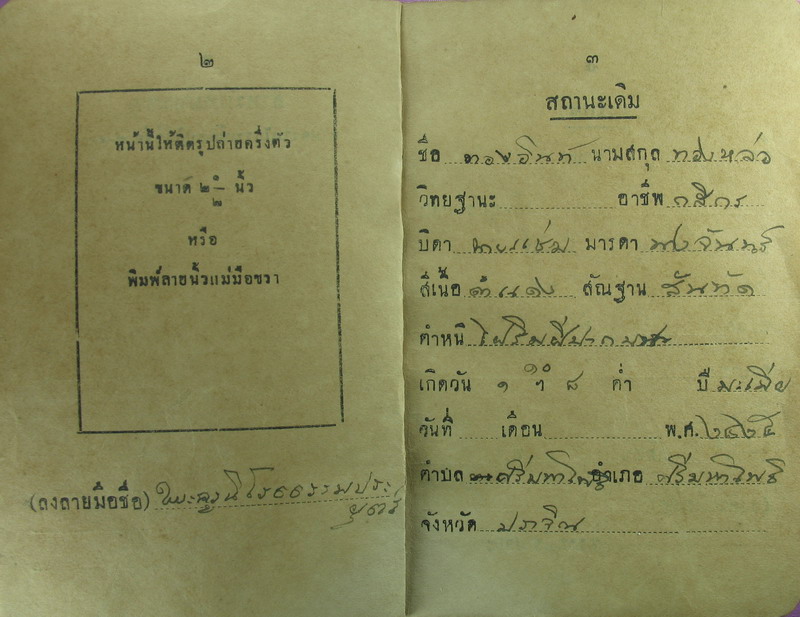 ๒
หน้านี้ให้ติดรูปถ่ายครึ่งตัว
ขนาด ๒ ๑/๒ นิ้ว
หรือ
พิมพ์ลายนิ้วแม่มือขวา
(ลงลายมือชื่อ)
๓
สถานะเดิม
ชื่อ ทองอินท์ นามสกุล ทองหล่อ
วิทยฐานะ อาชีพ กสิกร
บิดา นายแช่ม มารดา นางจันทร์
สีเนื้อ ดำแดง สัณฐาน สันทัด
ตำหนิ
เกิดวัน ๑ ๘ ค่ำ ปี มะเมีย
วันที่ เดือน พ.ศ. ๒๔๒๕
ตำบล ศรีมหาโพธิ อำเภอ ศรีมหาโพธิ
จังหวัด ปราจิณ